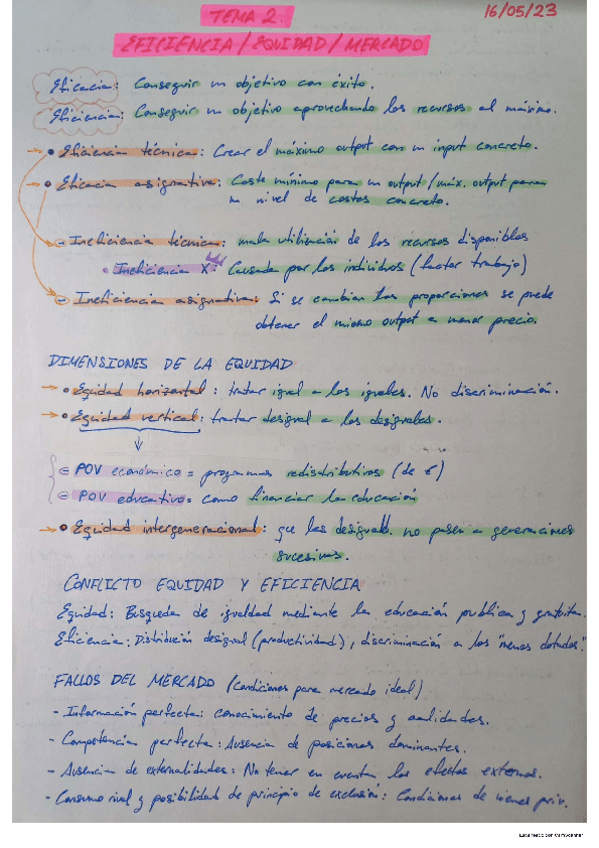 TEMA 2.
16/05/23
EFICIENCIA/EQUIDAD/MERCADO
Eficacia: Conseguir un objetivo con éxito.
Eficiencia: Conseguir un objetivo aprovechando los recursos al máximo.
• Eficiencia técnica: Crear el máximo output con un input concreto.
• Eficacia asignativa: Coste mínimo para un output/máx. output para
un nivel de costos concreto.
- Ineficiencia técnica: mala utilización de los recursos disponibles
• Ineficiencia X: Causada por los individuos (factor trabajo)
- Ineficiencia asignativa: Si se cambian las proporciones se puede
obtener el mismo output a menor precio.
DIMENSIONES DE LA EQUIDAD
• Equidad horizontal: tratar igual a los iguales. No discriminación.
• Equidad vertical: tratar desigual a los desiguales.
- POV económico = programas redistributivos (de €)
- POV educativo = como financiar la educación
• Equidad intergeneracional: que las desiguald. no pasen a generaciones
sucesivas.
CONFLICTO EQUIDAD Y EFICIENCIA
Equidad: Búsqueda de igualdad mediante la educación publica y gratuita.
Eficiencia: Distribución desigual (productividad), discriminación a los "menos dotados".
FALLOS DEL MERCADO (condiciones para mercado ideal)
- Información perfecta: conocimiento de precios y calidades.
- Competencia perfecta: Ausencia de posiciones dominantes.
- Ausencia de externalidades: No tener en cuenta los efectos externos.
- Consumo rival y posibilidad de principio de exclusión: Condiciones de bienes priv.